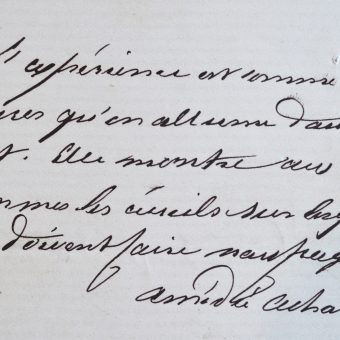 L'expérience est comme
qu'on allume dan
t. Elle montre au
mmes les écueils sur les
doivent faire naufrag
Amédée Acha